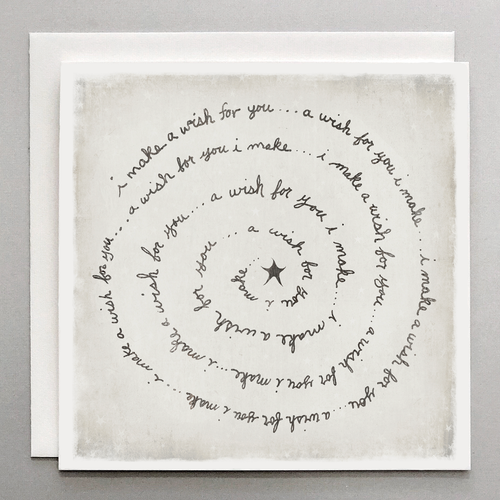 i make a wish for you...a wish for you i make...i make a wish for you...a wish for you i make...i make a wish for you...a wish for you i make...i make a wish for you...a wish for you i make...i make a wish for you...a wish for you i make...i make a wish for you...a wish for you i make...